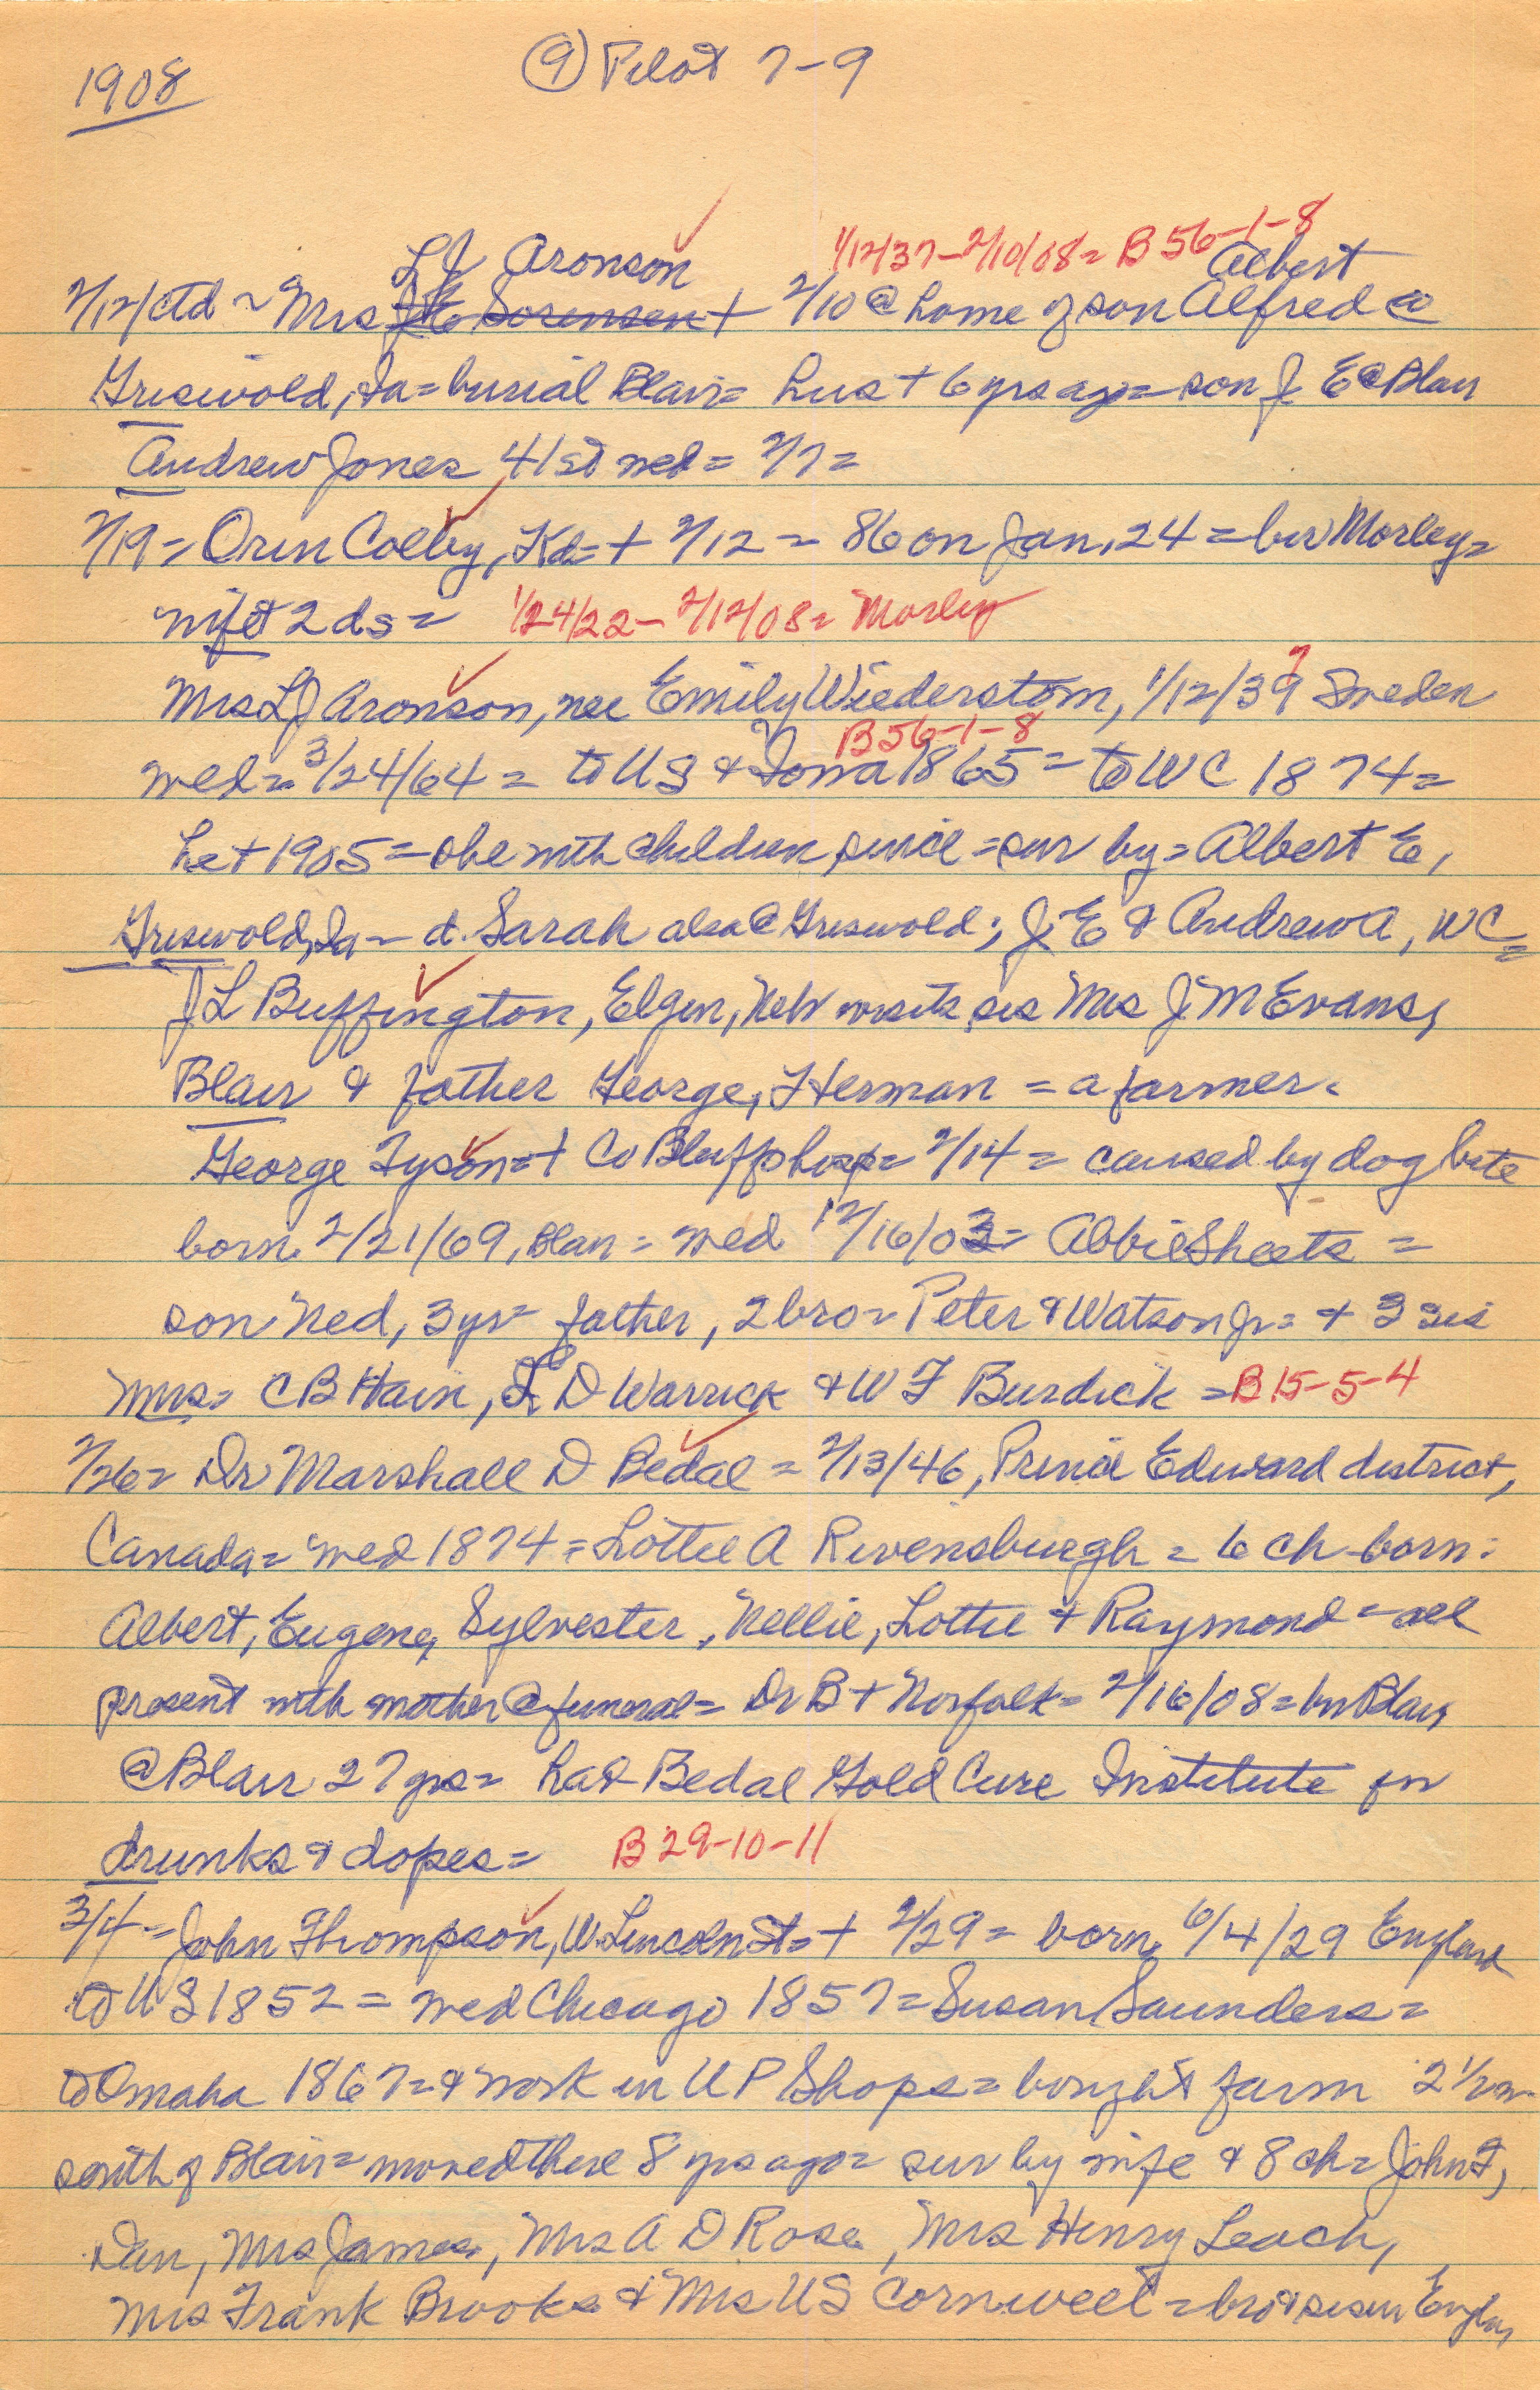 1908
⑨ Pilot 7-9
1/12/37-2/10/08= B 56-1-8
LJ Aronson Albert
2/12/ctd ~ Mrs JE Sorensen + 2/10 @ home of son Alfred @
Griswold, Ia= burial Blair= hus + 6 yrs ago= son J E @ Blair
Andrew Jones 41st wed = 2/7=
2/19= Orin Colby, Kd=+ 2/12 = 86 on Jan. 24 = bur Morley=
wife & 2 ds = 1/24/22- 2/12/08= Morley
7
Mrs LJ Aronson, nee Emily Wiederstom, 1/12/39 Sweden
B 56-1-8
wed = 3/24/64 = to US & Iowa 1865 = to WC 1874=
he + 1905 = she with children since = sur by= Albert E,
Griswold, Ia - d. Sarah also @ Griswold; J E & Andrew A, WC=
J L Buffington, Elgin, Neb visits sis Mrs J M Evans,
Blair & father George, Herman = a farmer.
George Tyson=+ Co Bluffs hosp= 2/14 = caused by dog bite
born 2/21/69, Blair = wed 12/16/03= Abbie Sheets =
son Ned, 3 yr= father, 2 bro= Peter & Watson Jr= & 3 sis
Mrs= C B Hain, L D Warrick & W F Burdick = B 15-5-4
2/26= Dr Marshall D Bedal = 2/13/46, Prince Edward district,
Canada= wed 1874 = Lottie A Rivensburgh = 6 ch born:
Albert, Eugene, Sylvester, Nellie, Lottie & Raymond = all
present with mother @ funeral= Dr B + Norfolk= 2/16/08 = bur Blair,
@ Blair 27 yrs= had Bedal Gold Cure Institute for
drunks & dopes = B 29-10-11
3/4= John Thompson, W. Lincoln St=+ 2/29= born 6/4/29 England
to US 1852 = wed Chicago 1857 = Susan Saunders=
to Omaha 1867= & work in UP Shops= bought farm 2 1/2 m.
south of Blair= moved there 8 yrs ago= sur by wife & 8 ch= John F,
Dan, Mrs James, Mrs A D Rose, Mrs Henry Leach,
Mrs Frank Brooks & Mrs US Cornwell = bro & sis in Engla,